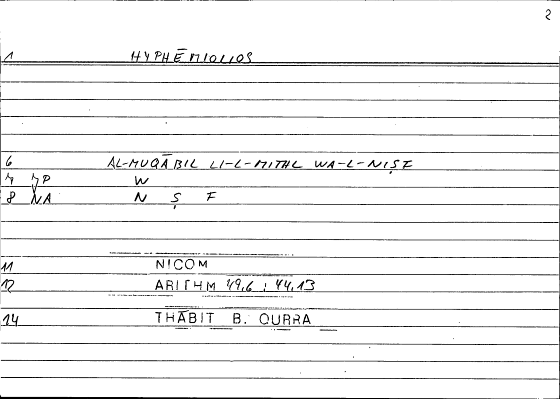 2
1 HYPHĒMIOLIOS
6 AL-MUQĀBIL LI-L-MITHL WA-L-NIṢF
7 7P W
8 NA N Ṣ F
11 NICOM
12 ARITHM 49,6 ; 44,13
14 THĀBIT B. QURRA